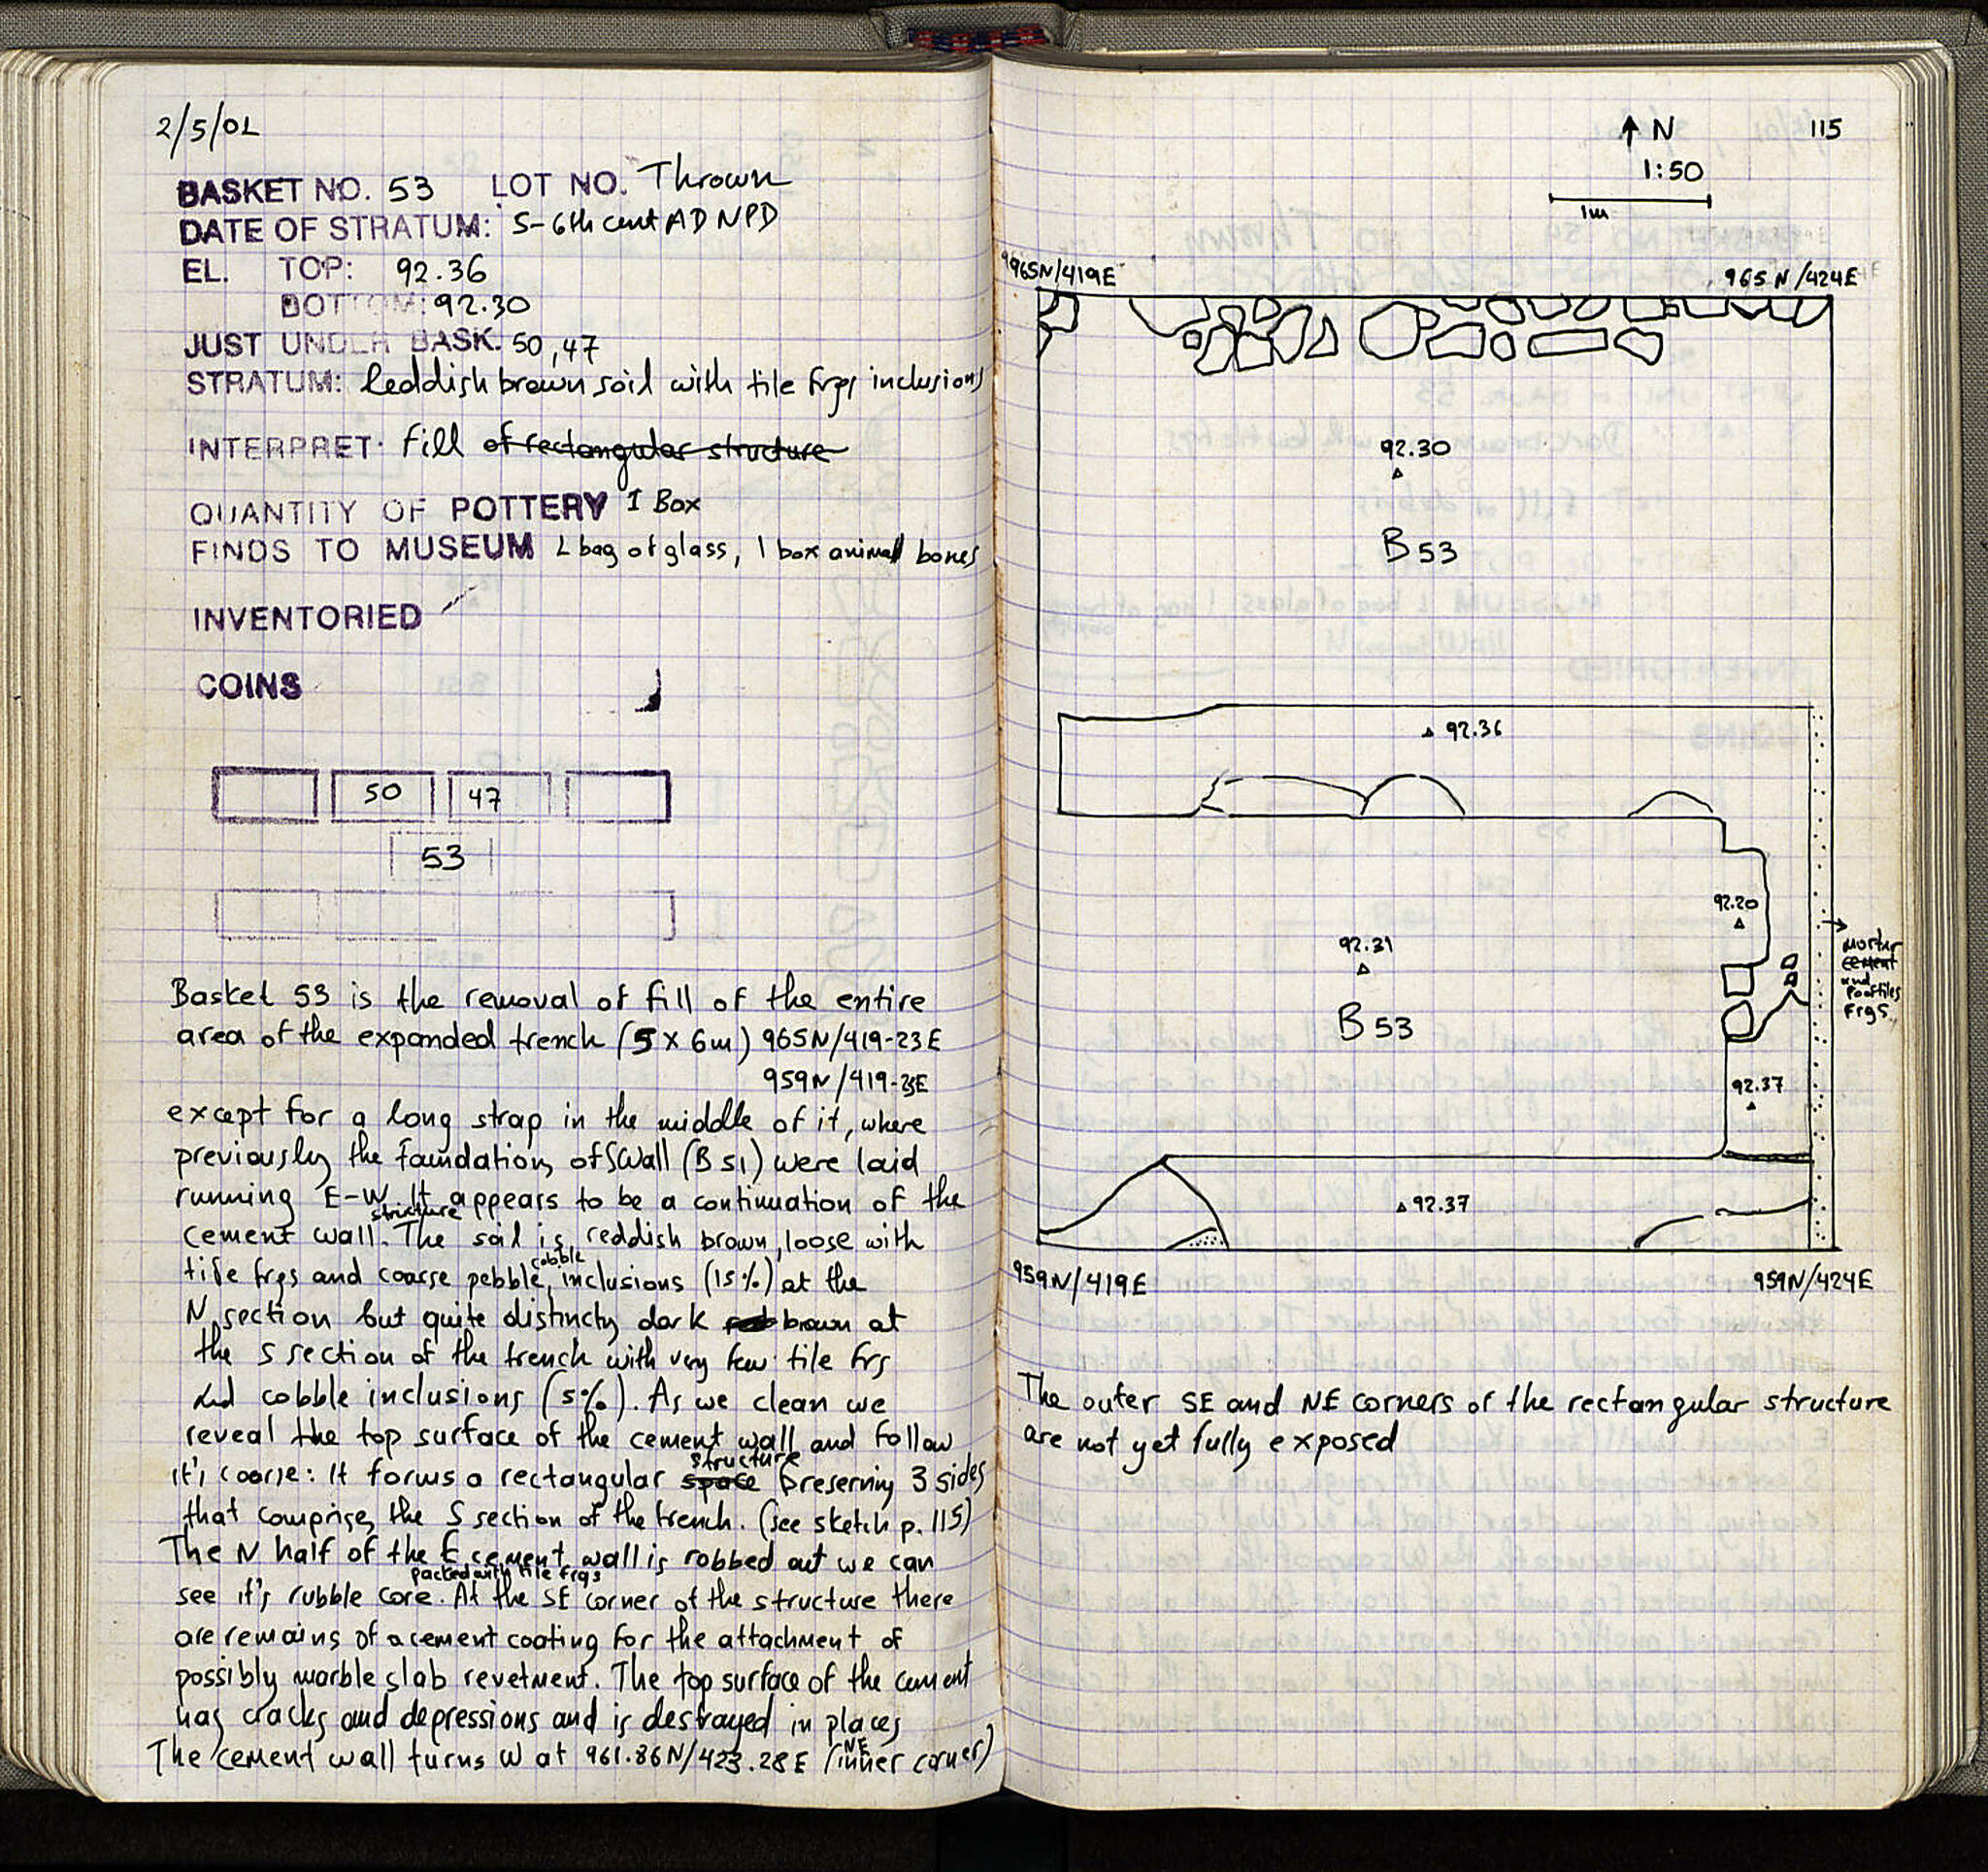 2/5/01
BASKET NO. 53 LOT NO. Thrown
DATE OF STRATUM: 5-6th cent AD NPD
EL. TOP: 92.36
BOTTOM: 92.30
JUST UNDER BASK. 50, 47
STRATUM: Reddish brown soil with tile frgs inclusions
INTERPRET. Fill of rectangular structure
QUANTITY OF POTTERY 1 Box
FINDS TO MUSEUM 1 bag of glass, 1 box animal bones
INVENTORIED
COINS
50 47
53
Basket 53 is the removal of fill of the entire
area of the expanded trench (5 x 6m) 965N/419-23E
959N/419-23E
except for a long strap in the middle of it, where
previously the foundations of S Wall (B 51) were laid
running E-W. It appears to be a continuation of the
cement wall structure. The soil is reddish brown, loose with
tile frgs and coarse pebble, cobble inclusions (15%) at the
N section but quite distincty dark brown at
the S section of the trench with very few tile frs
and cobble inclusions (5%). As we clean we
reveal the top surface of the cement wall and follow
it's coarse: It forms a rectangular space structure preserving 3 sides
that comprise the S section of the trench. (see sketch p. 115)
The N half of the E cement wall is robbed out we can
see it's rubble core packed with tile frgs. At the SE corner of the structure there
are remains of a cement coating for the attachment of
possibly marble slab revetment. The top surface of the cement
has cracks and depressions and is destroyed in places
The cement wall turns W at 961.86N/423.28E (NE inner corner)
N 115
1:50
1m
965N/419E 965N/424E
92.30
B 53
92.36
92.20
92.31
mortar
cement
and
rooftiles
frgs.
B 53
92.37
92.37
959N/419E 959N/424E
The outer SE and NE corners of the rectangular structure
are not yet fully exposed